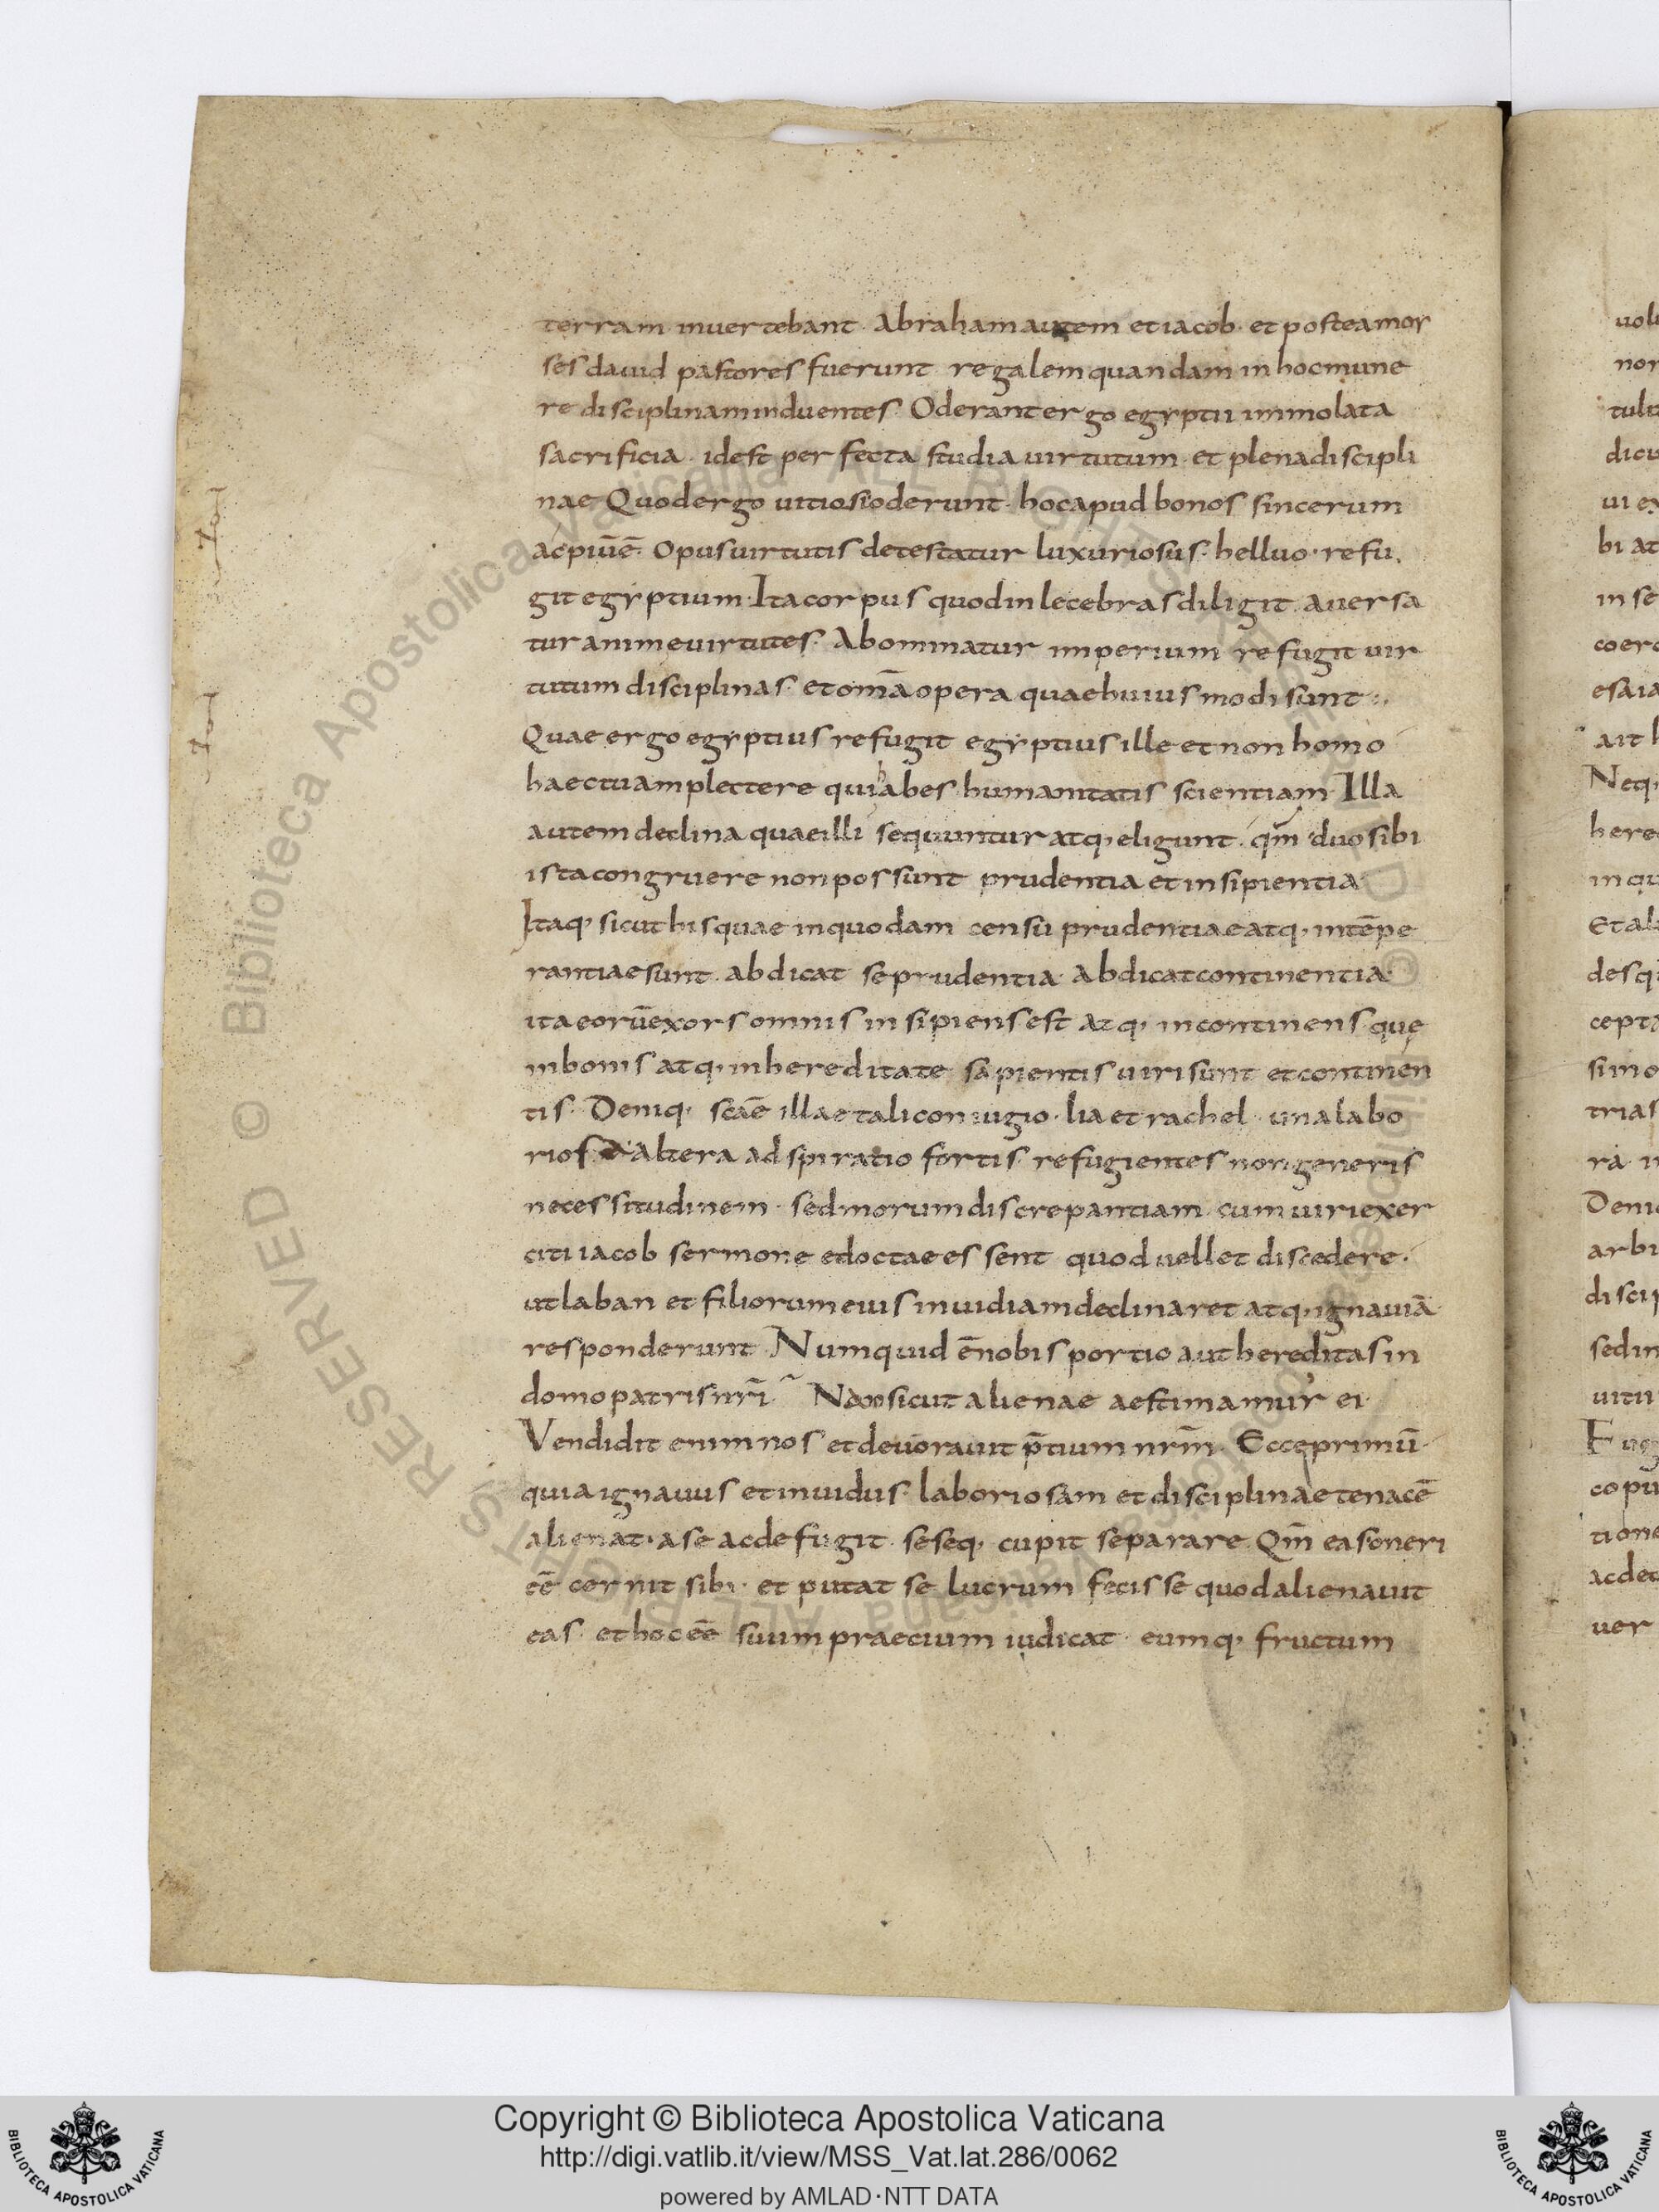 terram inuertebant· Abraham autem et iacob· et postea moy
ses dauid pastores fuerunt regalem quandam in hoc mune
re disciplinam induentes· Oderant ergo egyptii immolata
sacrificia· id est perfecta studia uirtutum· et plena discipli
nae Quod ergo uitiosi oderunt· hoc apud bonos sincerum
ac piū ē· Opus uirtutis detestatur luxuriosus· helluo· refu
git egyptium· Ita corpus quod inlecebras diligit auersa
tur anime uirtutes· Abominatur imperium refugit uir
tutum disciplinas· et om̄a opera quae huiusmodi sunt·
Quae ergo egyptius refugit egyptius ille et non homo
haec tu amplectere qui habes humanitatis scientiam· Illa
autem declina quae illi sequuntur atq· eligunt· qm̄ duo sibi
ista congruere non possunt prudentia et insipientia·
Itaq· sicut his quae in quodam censu prudentiae atq· intēpe
rantiae sunt abdicat se prudentia· Abdicat continentia·
ita eorū exors omnis insipiens est atq· incontinens· quę
in bonis atq· in hereditate sapientis uiri sunt et continen
tis· Deniq· scāe illae tali coniugio· lia et rachel· una labo
riosa altera adspiratio fortis· refugientes non generis
necessitudinem· sed morum discrepantiam· cum uiri exer
citi iacob sermone edoctae essent quod uellet discedere·
ut laban et filiorum eius inuidiam declinaret atq· ignauiā
responderunt· Numquid ē nobis portio aut hereditas in
domo patris nr̄i· Non sicut alienae aestimamur ei·
Vendidit enim nos et deuorauit p̄tium nrm̄· Ecce primū·
quia ignauus et inuidus· laboriosam et disciplinae tenacē
alienat· a se ac defugit· seseq· cupit separare Qm̄ eas oneri
eē cernit sibi· et putat se lucrum fecisse quod alienauit
eas· et hoc eē suum praecium iudicat· eumq· fructum
Copyright © Biblioteca Apostolica Vaticana
http://digi.vatlib.it/view/MSS_Vat.lat.286/0062
powered by AMLAD·NTT DATA
BIBLIOTECA APOSTOLICA VATICANA
BIBLIOTECA APOSTOLICA VATICANA